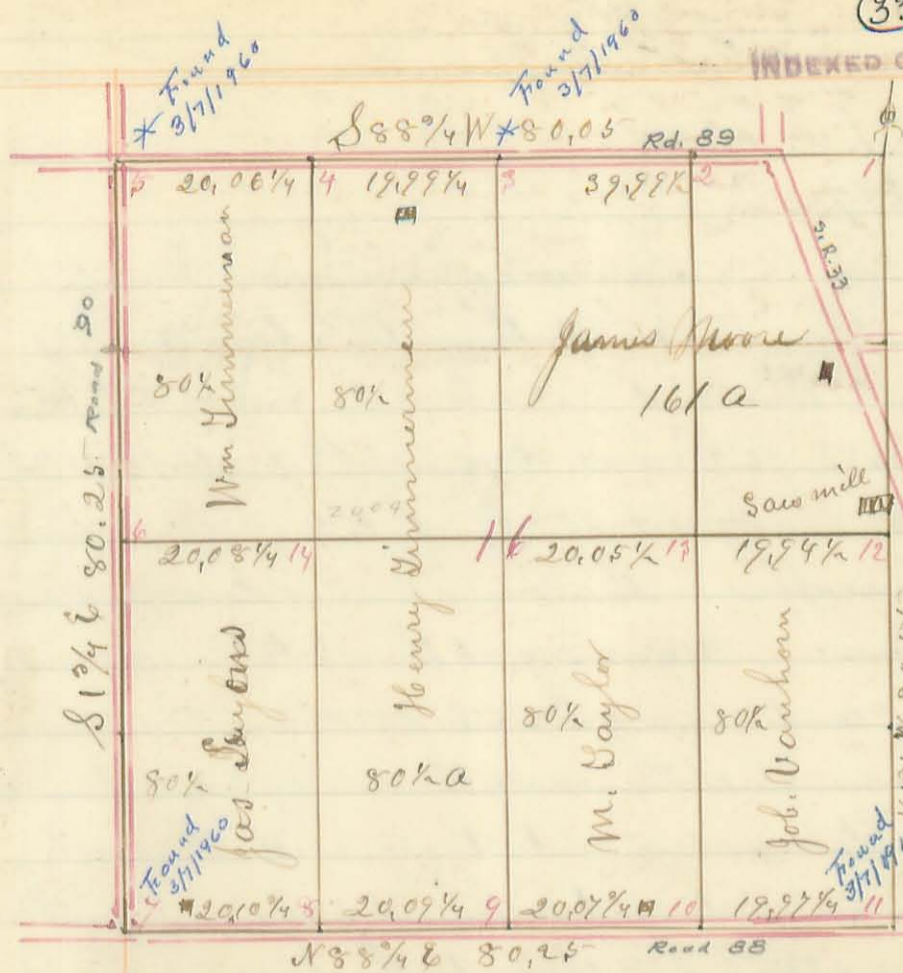 33
INDEXED
Found
3/7/1960
Found
3/7/1960
* S 88 3/4 W * 80,05 Rd. 89
5 20,06 1/4 4 19,99 1/4 3 39,99 1/2 2 1
S.R. 33
Wm Timmerman
80 1/2
Henry Timmerman
80 1/2
James Moore
161 a
Saw mill
S 1 3/4 E 80.25 Road 90
6 20,08 1/4 14 16 20,05 1/2 13 19,94 1/2 12
Jas.
80 1/2
80 1/2 a
M. Taylor
80 1/2
Job. Vanhorn
80 1/2
Found
3/7/1960
Found
7 20,10 1/4 8 20,09 1/4 9 20,07 3/4 10 19,97 1/4 11
N 88 3/4 E 80,25 Road 88